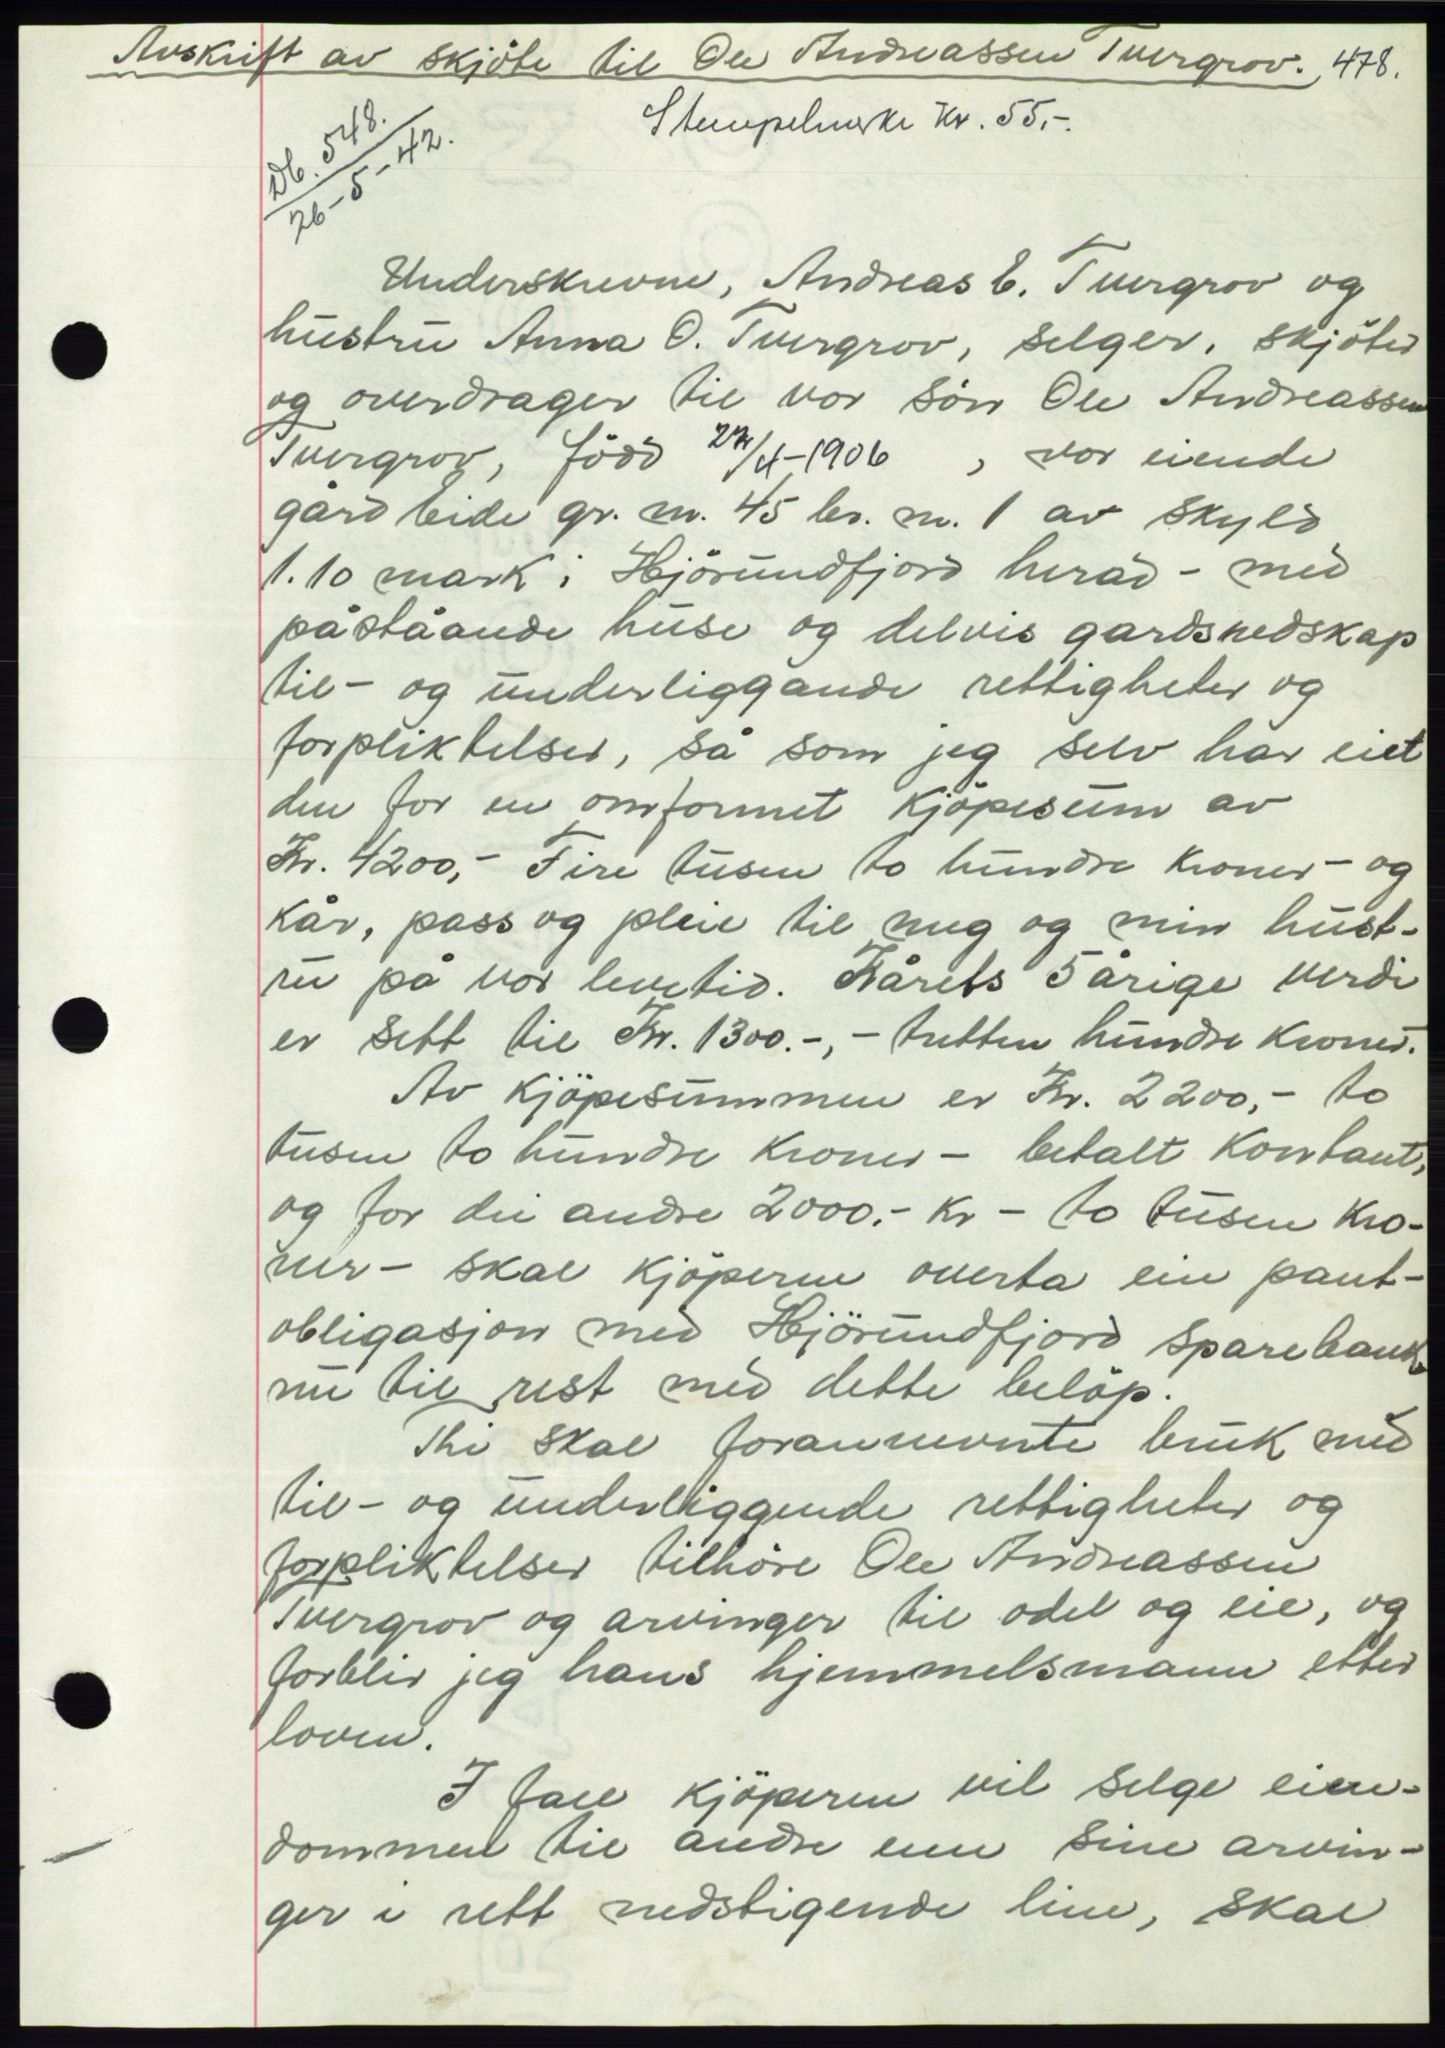 Avskrift av skjöte til Ole Andreassen Tvergrov. 478.
Stempelmerke kr. 55,-.
Db. 548.
26-5-42.
Underskrevne, Andreas E. Tvergrov og
hustru Anna O. Tvergrov, selger, skjöter
og overdrager til vor sön Ole Andreassen
Tvergrov, född /4-1906, vor eiende
gård Eide gr. nr. 45 br. nr. 1 av skyld
1.10 mark i Hjörundfjord herad - med
påståande huse og delvis gardsredskap
til- og underliggande rettigheter og
forpliktelser, så som jeg selv har eiet
den for en omformet kjöpesum av
Kr. 4200,- Fire tusen to hundre kroner - og
kår, pass og pleie til meg og min hust-
ru på vor levetid. Kårets 5 årige verdi
er sett til Kr. 1300.-,- tretten hundre kroner.
Av kjöpesummen er Kr. 2200,- to
tusen to hundre kroner - betalt kontant,
og for dei andre 2000.- kr - to tusen kro-
ner - skal kjöperen overta ein pant-
obligasjon med Hjörundfjord Sparebank
nu til rest med dette belöp.
Thi skal forannevnte bruk med
til- og underliggende rettigheter og
forpliktelser tilhöre Ole Andreassen
Tvergrov og arvinger til odel og eie, og
forblir jeg hans hjemmelsmann etter
loven.
I fall kjöperen vil selge eien-
dommen til andre enn sine arvin-
ger i rett nedstigende line, skal